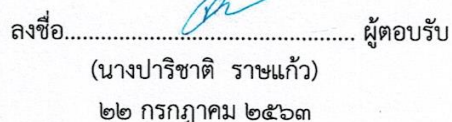 ลงชื่อ................................................ ผู้ตอบรับ
(นางปาริชาติ ราษแก้ว)
๒๒ กรกฎาคม ๒๕๖๓